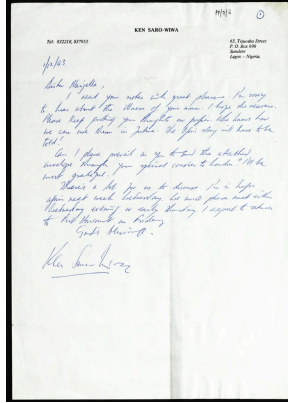 ①
KEN SARO-WIWA
Tel: 832218, 837953
Surulere
Lagos - Nigeria.
Sister Majella,
I read your notes with great pleasure. I'm sorry
to hear about the illness of your niece. I hope she recovers.
Please keep putting your thoughts on paper. Who knows how
we can use them in future. The Ogoni story will have to be
told!
Can I please prevail on you to send the attached
envelope through your Agency's courier to London? I'll be
most grateful.
There's a lot for us to discuss. I'm in Lagos
again next week Wednesday, but will phone
Wednesday evening or early Thursday. I expect to return
to Port Harcourt on Friday.
God's blessings.
Ken Saro-Wiwa